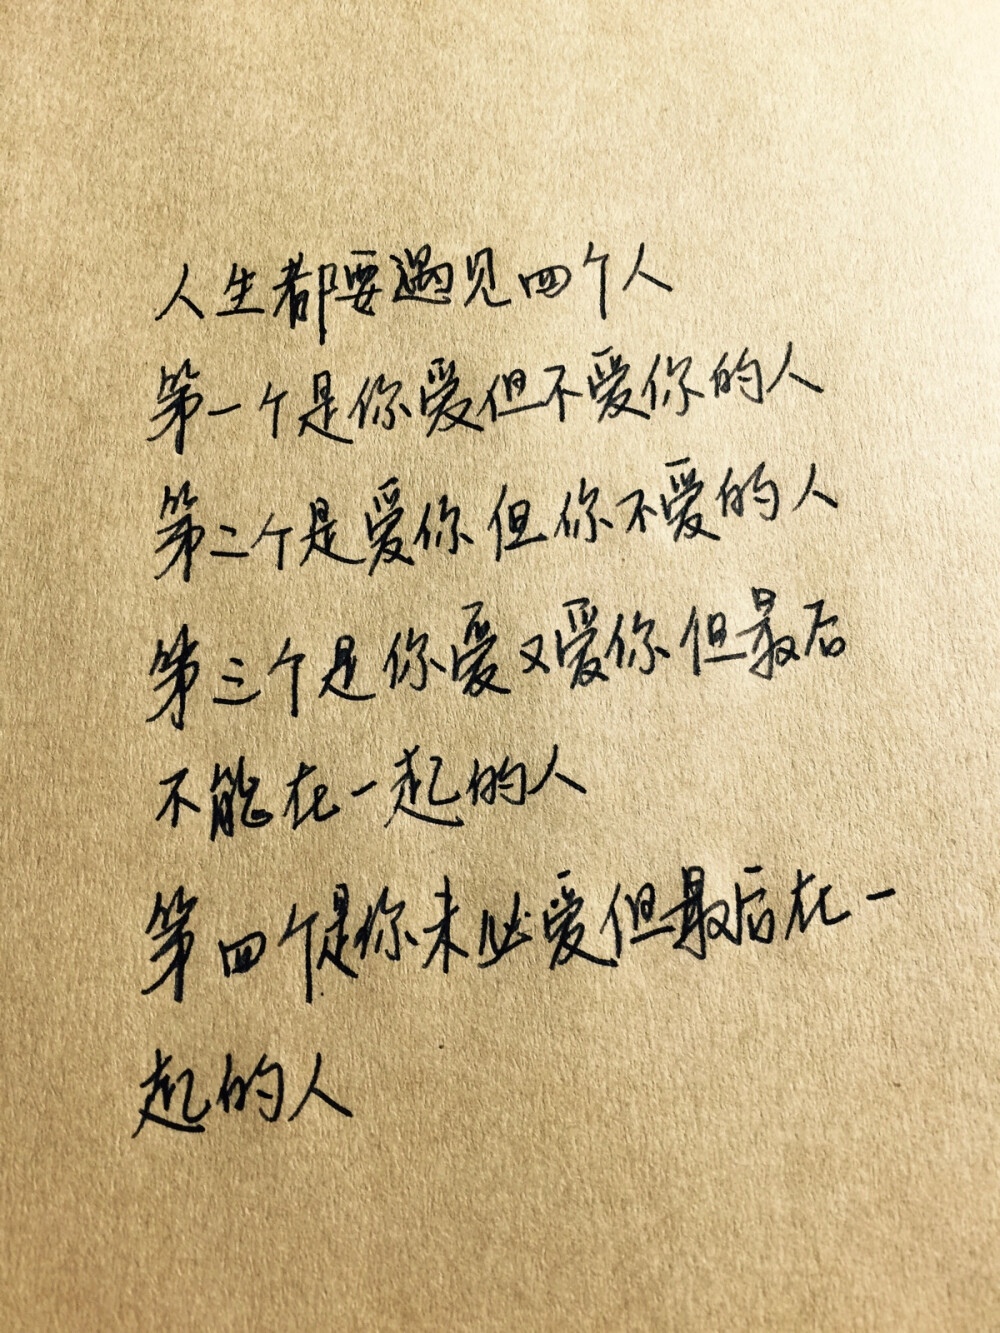 人生都要遇见四个人
第一个是你爱但不爱你的人
第二个是爱你但你不爱的人
第三个是你爱又爱你但最后
不能在一起的人
第四个是你未必爱但最后在一
起的人